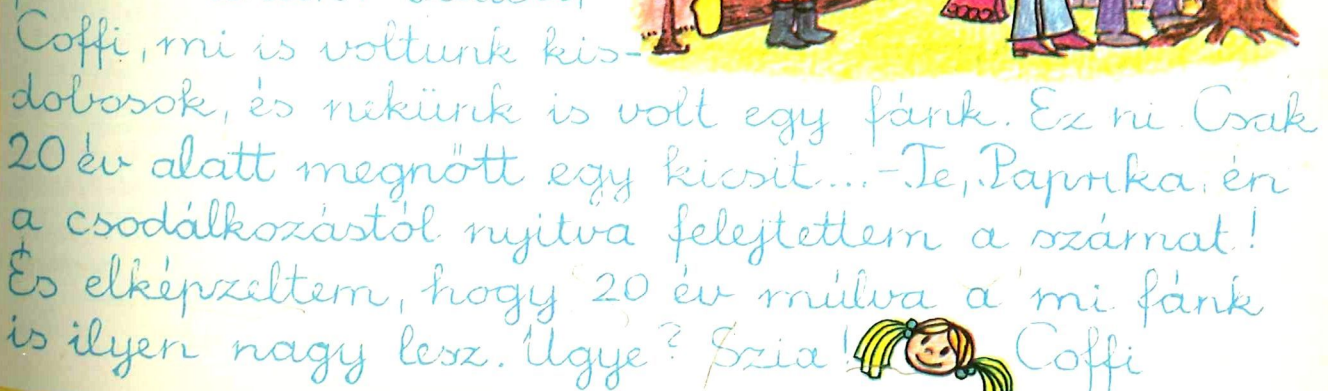 Coffi, mi is voltunk kis-
dobosok, és nekünk is volt egy fánk. Ez ni. Csak
20 év alatt megnőtt egy kicsit...-Te, Paprika, én
a csodálkozástól nyitva felejtettem a számat!
És elképzeltem, hogy 20 év múlva a mi fánk
is ilyen nagy lesz. Ugye? Szia! Coffi